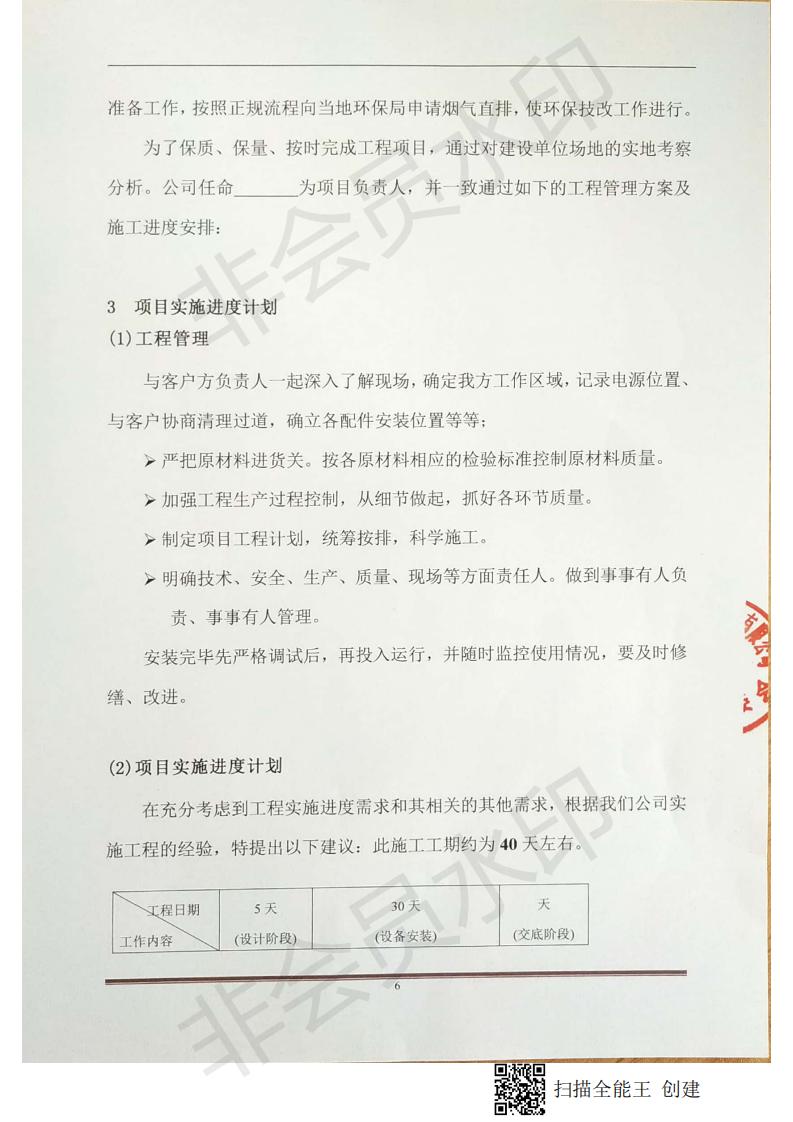 准备工作，按照正规流程向当地环保局申请烟气直排，使环保技改工作进行。
为了保质、保量、按时完成工程项目，通过对建设单位场地的实地考察
分析。公司任命_______为项目负责人，并一致通过如下的工程管理方案及
施工进度安排：
3 项目实施进度计划
(1)工程管理
与客户方负责人一起深入了解现场，确定我方工作区域，记录电源位置、
与客户协商清理过道，确立各配件安装位置等等；
➢ 严把原材料进货关。按各原材料相应的检验标准控制原材料质量。
➢ 加强工程生产过程控制，从细节做起，抓好各环节质量。
➢ 制定项目工程计划，统筹按排，科学施工。
➢ 明确技术、安全、生产、质量、现场等方面责任人。做到事事有人负
责、事事有人管理。
安装完毕先严格调试后，再投入运行，并随时监控使用情况，要及时修
缮、改进。
(2)项目实施进度计划
在充分考虑到工程实施进度需求和其相关的其他需求，根据我们公司实
施工程的经验，特提出以下建议：此施工工期约为 40 天左右。
工程日期 5 天 30 天 天
工作内容 (设计阶段) (设备安装) (交底阶段)
6
非会员水印
非会员水印
扫描全能王 创建